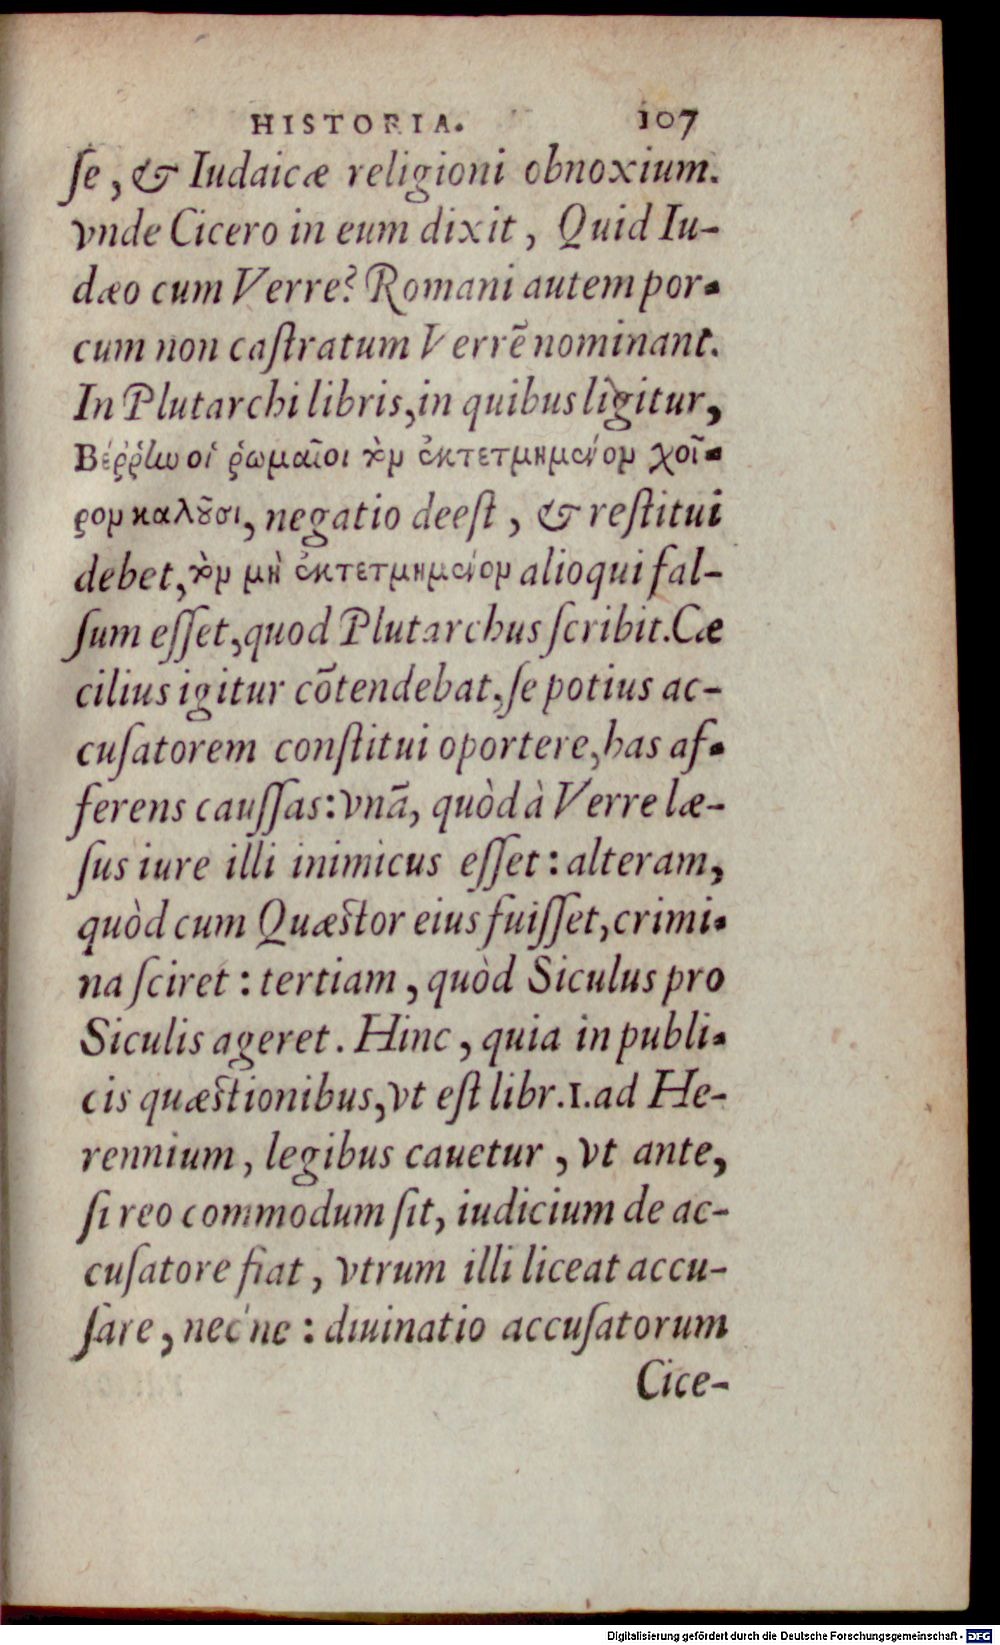 HISTORIA. 107
ſe, & Iudaicæ religioni obnoxium.
vnde Cicero in eum dixit, Quid Iu-
dæo cum Verre? Romani autem por-
cum non caſtratum Verrē nominant.
In Plutarchi libris, in quibus lìgitur,
Βέῤῥω οἱ ῥωμαῖοι τὸν ἐκτετμημένον χοῖ-
ρον καλοῦσι, negatio deeſt, & reſtitui
debet, τὸν μὴ ἐκτετμημένον alioqui fal-
ſum eſſet, quod Plutarchus ſcribit. Cæ
cilius igitur cōtendebat, ſe potius ac-
cuſatorem conſtitui oportere, has af-
ferens cauſſas: vnā, quòd à Verre læ-
ſus iure illi inimicus eſſet: alteram,
quòd cum Quæſtor eius fuiſſet, crimi-
na ſciret: tertiam, quòd Siculus pro
Siculis ageret. Hinc, quia in publi-
cis quæſtionibus, vt eſt libr. I. ad He-
rennium, legibus cauetur, vt ante,
ſi reo commodum ſit, iudicium de ac-
cuſatore fiat, vtrum illi liceat accu-
ſare, nec'ne: diuinatio accuſatorum
Cice-
Digitalisierung gefördert durch die Deutsche Forschungsgemeinschaft - DFG